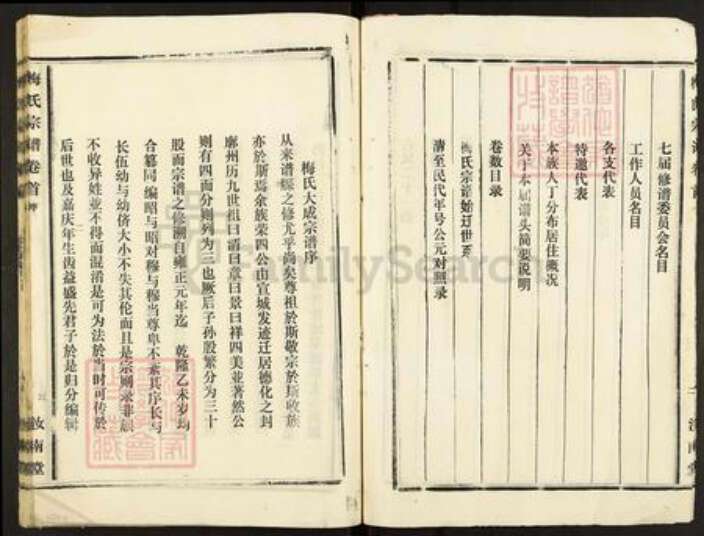 七届修谱委员会名目
工作人员名目
各支代表
特邀代表
本族人丁分布居住概况
关于本届谱头简要说明
卷数目录
梅氏宗谱始迁世系
清至民代年号公元对照录
汝南堂
梅氏宗谱卷首
梅氏大成宗谱序
从来谱牒之修尤乎尚矣尊祖於斯敬宗於斯收族
亦於斯焉余族荣四公由宣城发迹迁居德化之封
廓州历九世祖曰谓曰章曰景曰祥四美並著然公
则有四而分则列为三也厥后子孙殷繁分为三十
股而宗谱之修溯自雍正元年迄 乾隆乙未岁均
合纂同编昭与昭对穆与穆当尊卑不紊其序长与
长伍幼与幼侪大小不失其伦而且是宗则录非颜
不收异姓並不得而混淆是可为法於当时可传於
后世也及嘉庆年生齿益盛先君子於是归分编辑
汝南堂
FamilySearch